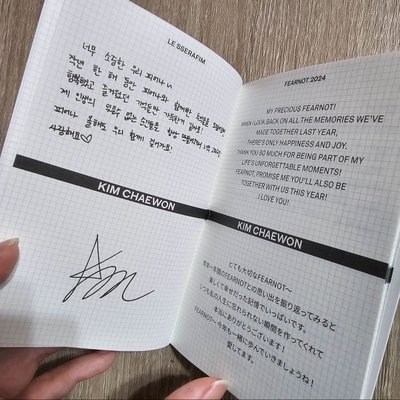 LE SSERAFIM
너무 소중한 우리 피어나 ~
작년 한 해 동안 피어나와 함께한
행복했고 즐거웠던 기억들만 가득하길
제 인생의 잊을수 없는 순간들을
피어나 올해도 우리 함께 걸어가요!
사랑해요♡
KIM CHAEWON
FEARNOT 2024
MY PRECIOUS FEARNOT!
WHEN I LOOK BACK ON ALL THE MEMORIES WE'VE
MADE TOGETHER LAST YEAR,
THERE'S ONLY HAPPINESS AND JOY.
THANK YOU SO MUCH FOR BEING PART OF MY
LIFE'S UNFORGETTABLE MOMENTS!
FEARNOT, PROMISE ME YOU'LL ALSO BE
TOGETHER WITH US THIS YEAR!
I LOVE YOU!
KIM CHAEWON
とても大切なFEARNOT〜
昨年一年間のFEARNOTとの思い出を振り返ってみると
楽しくて幸せだった記憶でいっぱいです。
いつも私の人生に忘れられない瞬間を作ってくれて
本当にありがとうございます!
FEARNOT〜今年も一緒に歩んでいきましょうね!
愛してます。